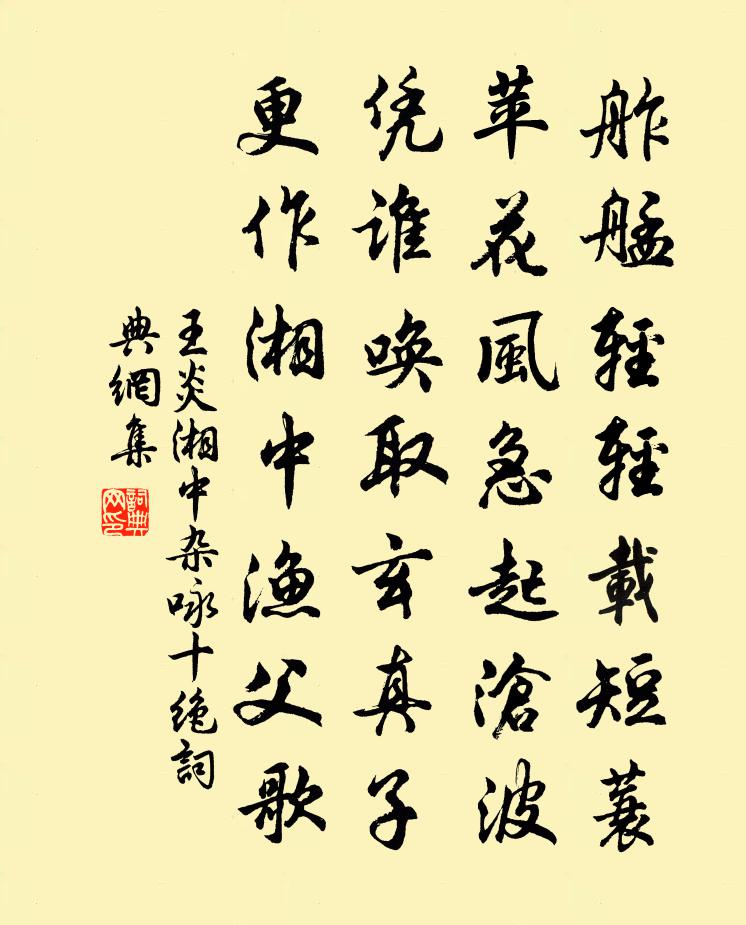 舴艋輕輕載短蓑
苹花風急起滄波
凭谁唤取玄真子
更作湘中漁父歌
王炎湘中杂咏十绝詞
典網集
詞典网印